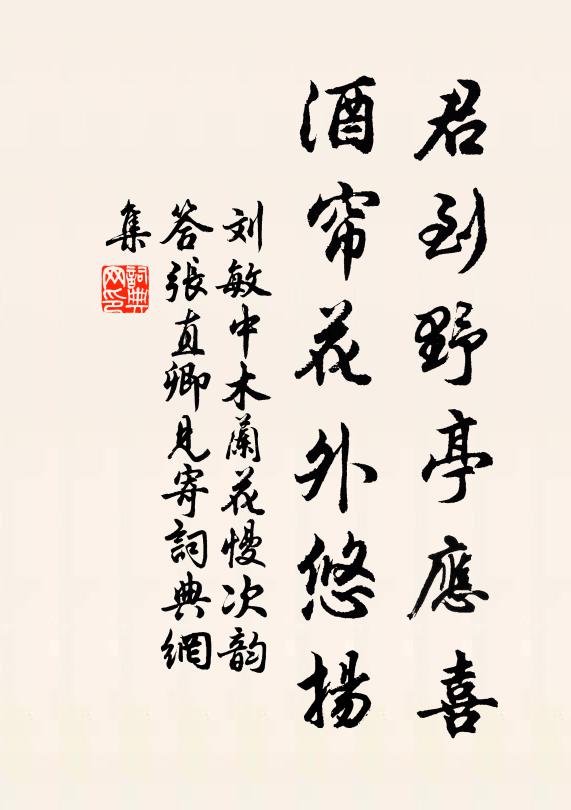 君到野亭應喜
酒帘花外悠揚
刘敏中木蘭花慢次韵
答張直卿見寄詞典網
集
詞典
网印